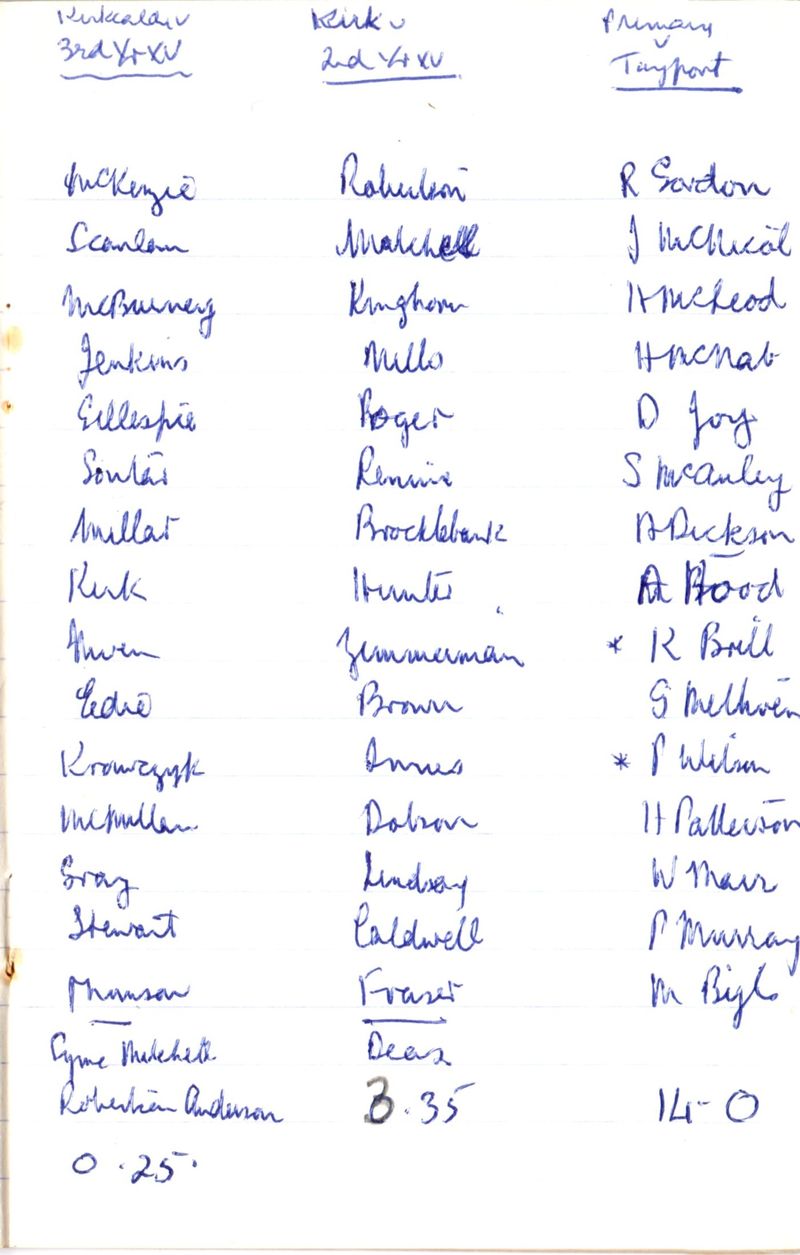 Kirkcaldy v Kirk v Primary v
3rd Yr XV 2nd Yr XV Tayport
McKenzie Robertson R Gordon
Scanlan Mitchell J McNicol
McBurney Kinghorn H McLeod
Jenkins Mills H McNab
Gillespie Roger D Joy
Soutar Rennie S McAuley
Millar Brocklebank A Dickson
Kirk Hunter A Hood
Niven Zimmerman * K Brill
Eadie Brown G Methven
Krawczyk Innes * P Wilson
McMillan Dobson H Patterson
Gray Lindsay W Mair
Stewart Caldwell P Murray
Thomson Fraser M
Syme Mitchell Deas
Robertson Anderson 3.35 14-0
0.25.